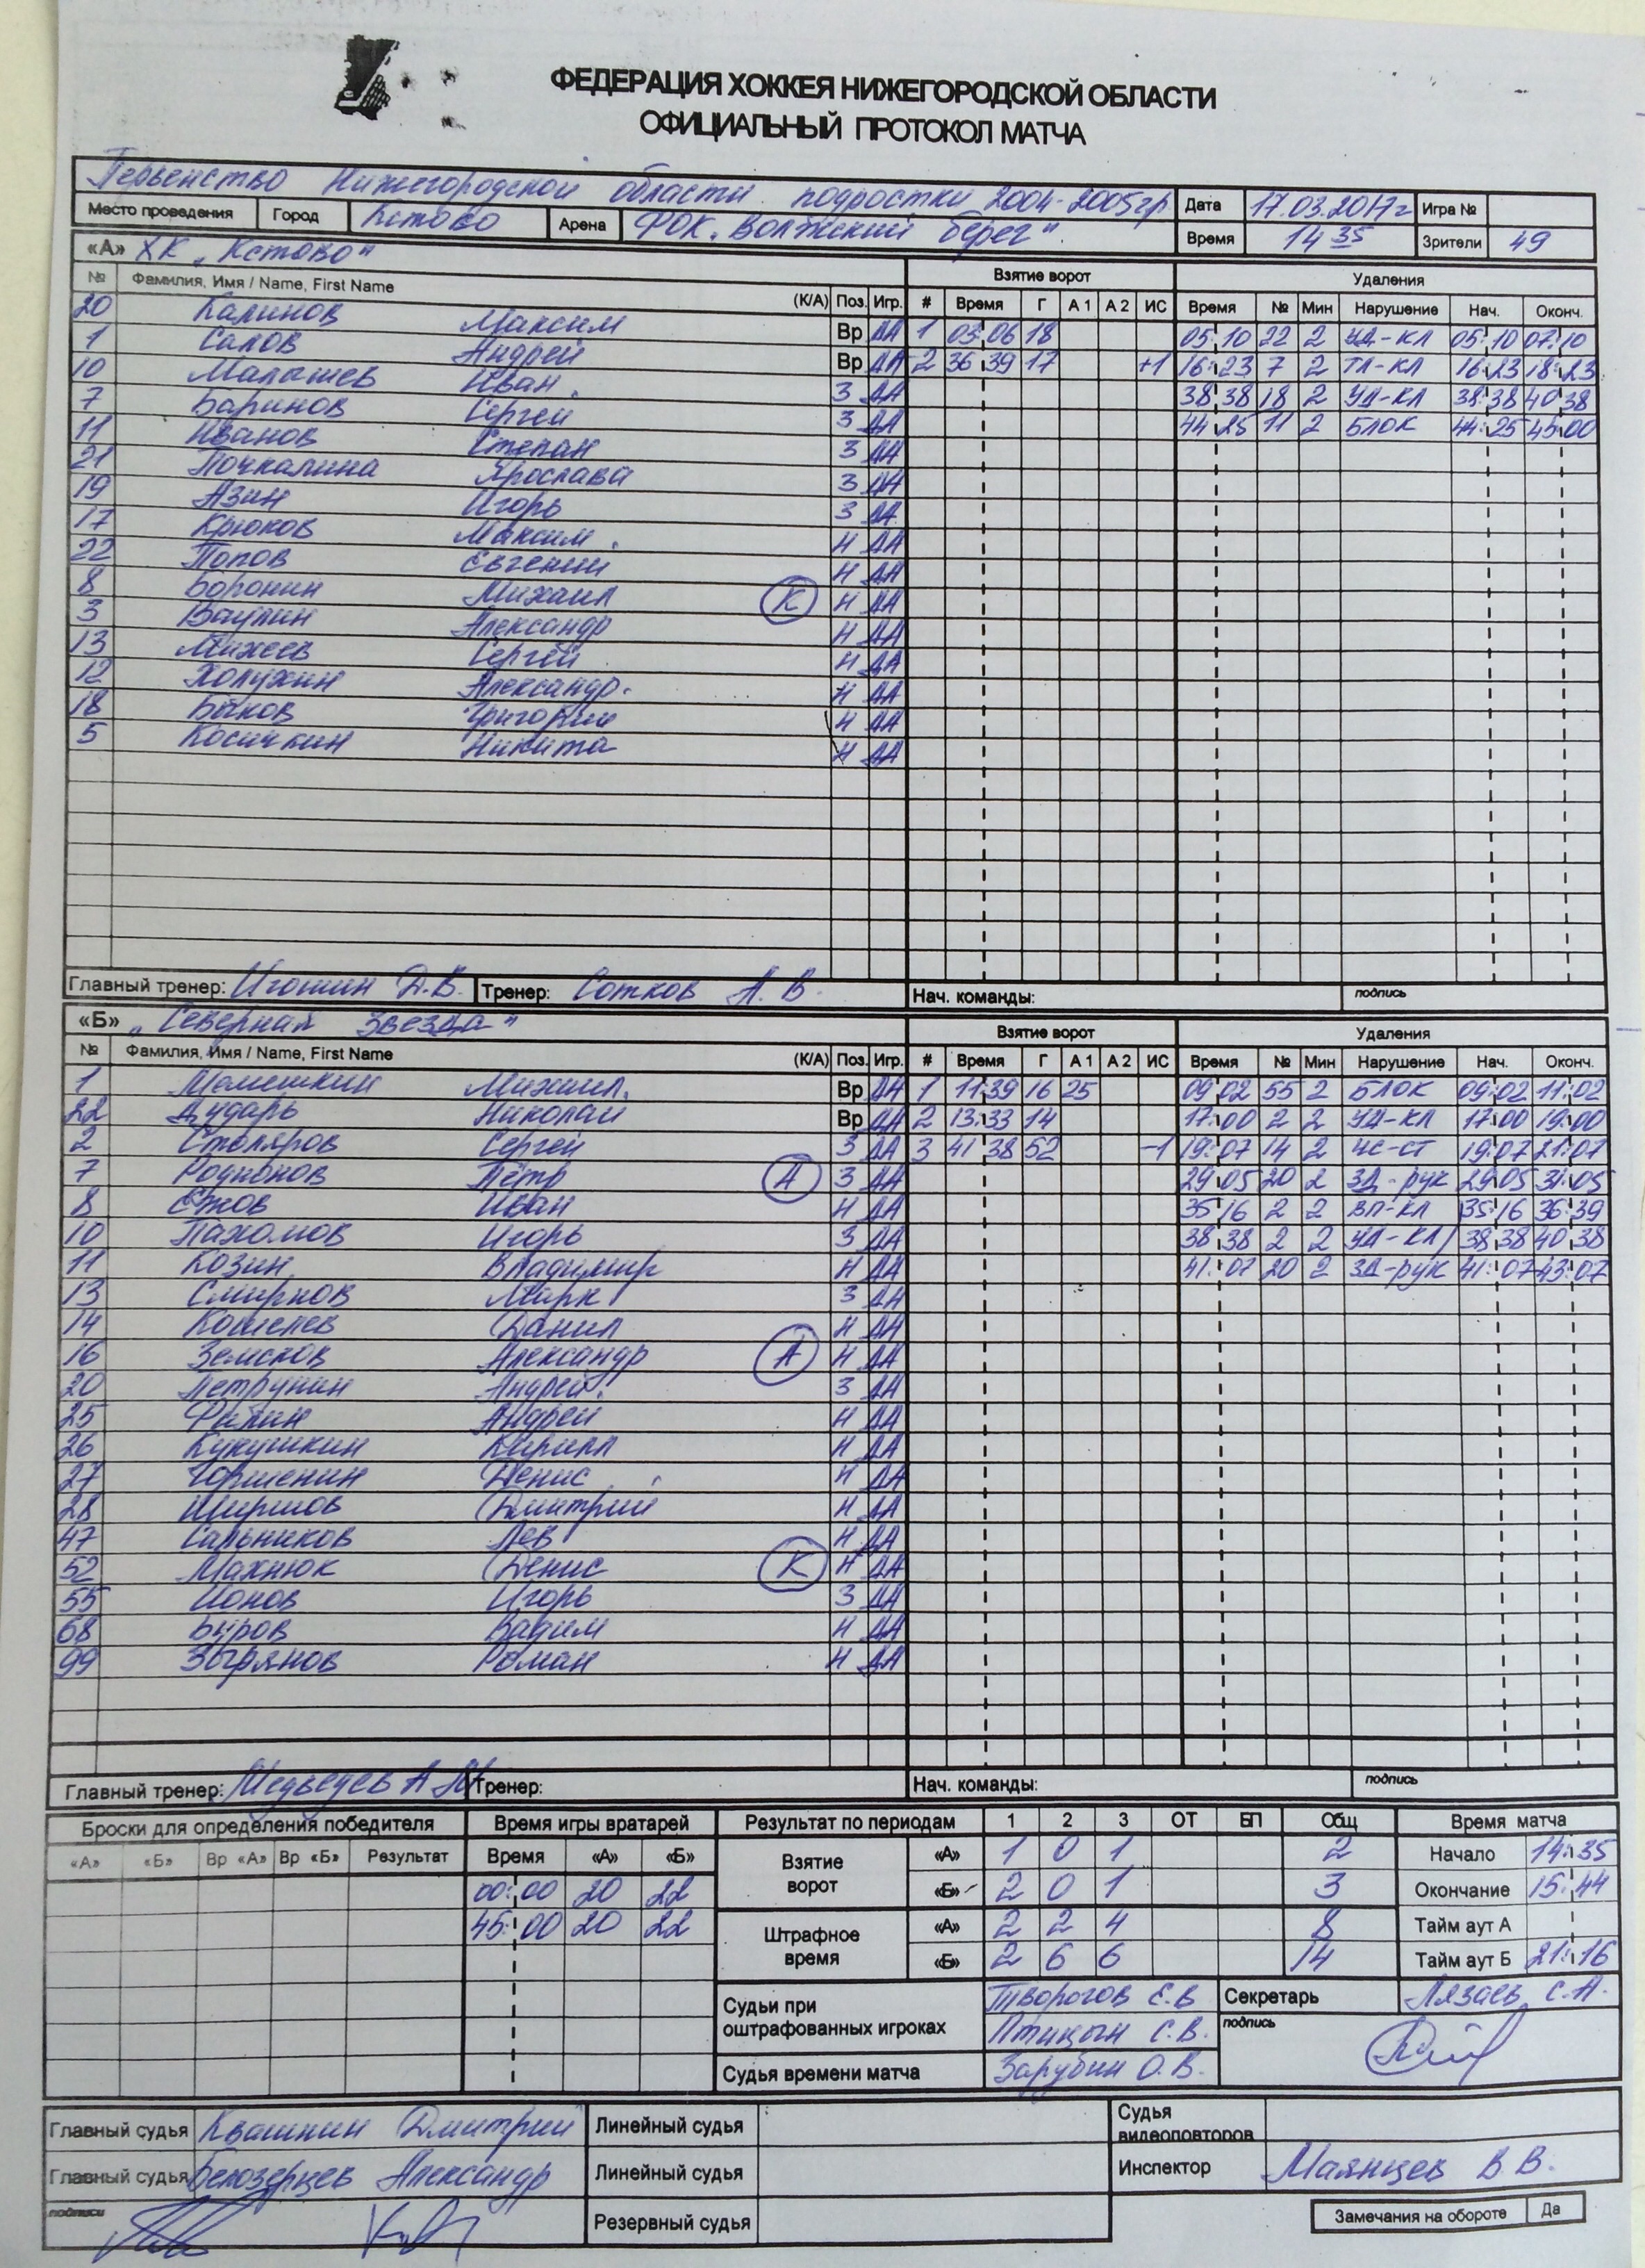 ФЕДЕРАЦИЯ ХОККЕЯ НИЖЕГОРОДСКОЙ ОБЛАСТИ
ОФИЦИАЛЬНЫЙ ПРОТОКОЛ МАТЧА
Первенство Нижегородской области подростки 2004-2005гр Дата 17.03.2017г Игра №
Место проведения Город Кстово Арена ФОК „Волжский берег" Время 14 35 Зрители 49
«А» ХК „Кстово" Взятие ворот Удаления
№ Фамилия, Имя / Name, First Name (К/А) Поз. Игр. # Время Г А 1 А 2 ИС Время № Мин Нарушение Нач. Оконч.
20 Калинов Максим Вр ДА 1 03:06 18 05:10 22 2 УД-КЛ 05:10 07:10
1 Салов Андрей Вр ДА 2 36:39 17 +1 16:23 7 2 ТЛ-КЛ 16:23 18:23
10 Малышев Иван З ДА 38:38 18 2 УД-КЛ 38:38 40:38
7 Баринов Сергей З ДА 44:25 11 2 БЛОК 44:25 45:00
11 Иванов Степан З ДА
21 Почкалина Ярослава З ДА
19 Азин Игорь З ДА
17 Крюков Максим Н ДА
22 Попов Евгений Н ДА
8 Воронин Михаил К Н ДА
3 Ваулин Александр Н ДА
13 Михеев Сергей Н ДА
12 Холухин Александр. Н ДА
18 Быков Григорий Н ДА
5 Косичкин Никита Н ДА
Главный тренер: Игошин Д.В. Тренер: Сотков А. В. Нач. команды: подпись
«Б» „Северная звезда" Взятие ворот Удаления
№ Фамилия, Имя / Name, First Name (К/А) Поз. Игр. # Время Г А 1 А 2 ИС Время № Мин Нарушение Нач. Оконч.
1 Мамешкин Михаил. Вр ДА 1 11:39 16 25 09:02 55 2 БЛОК 09:02 11:02
22 Дударь Николай Вр ДА 2 13:33 14 17:00 2 2 УД-КЛ 17:00 19:00
2 Столяров Сергей З ДА 3 41:38 52 -1 19:07 14 2 ЧС-СТ 19:07 21:07
7 Родионов Пётр А З ДА 29:05 20 2 ЗД-рук 29:05 31:05
8 Иван Н ДА 35:16 2 2 ВП-КЛ 35:16 36:39
10 Пахомов Игорь З ДА 38:38 2 2 УД-КЛ 38:38 40:38
11 Козин Владимир Н ДА 41:07 20 2 ЗД-рук 41:07 43:07
13 Смирнов Марк З ДА
14 Кошелев Данил Н ДА
16 Земсков Александр А Н ДА
20 Петрунин Андрей. З ДА
25 Филин Андрей Н ДА
26 Кукушкин Кирилл Н ДА
27 Горшенин Денис Н ДА
28 Ширшов Дмитрий Н ДА
47 Сальников Лев Н ДА
52 Махнюк Денис К Н ДА
55 Ионов Игорь З ДА
68 Буров Вадим Н ДА
99 Зырянов Роман Н ДА
Главный тренер: Медведев А.М. Тренер: Нач. команды: подпись
Броски для определения победителя Время игры вратарей Результат по периодам 1 2 3 ОТ БП Общ Время матча
«А» «Б» Вр «А» Вр «Б» Результат Время «А» «Б» Взятие ворот «А» 1 0 1 2 Начало 14:35
00:00 20 22 «Б» 2 0 1 3 Окончание 15:44
45:00 20 22 Штрафное время «А» 2 2 4 8 Тайм аут А
«Б» 2 6 6 14 Тайм аут Б 21:16
Судьи при оштрафованных игроках Творогов Е.В Секретарь Лязаев С.А.
Птицын С.В. подпись
Судья времени матча Зарубин О.В.
Главный судья Квашнин Дмитрий Линейный судья Судья видеоповторов
Главный судья Белозерцев Александр Линейный судья Инспектор Маянцев В.В.
подписи Резервный судья Замечания на обороте Да